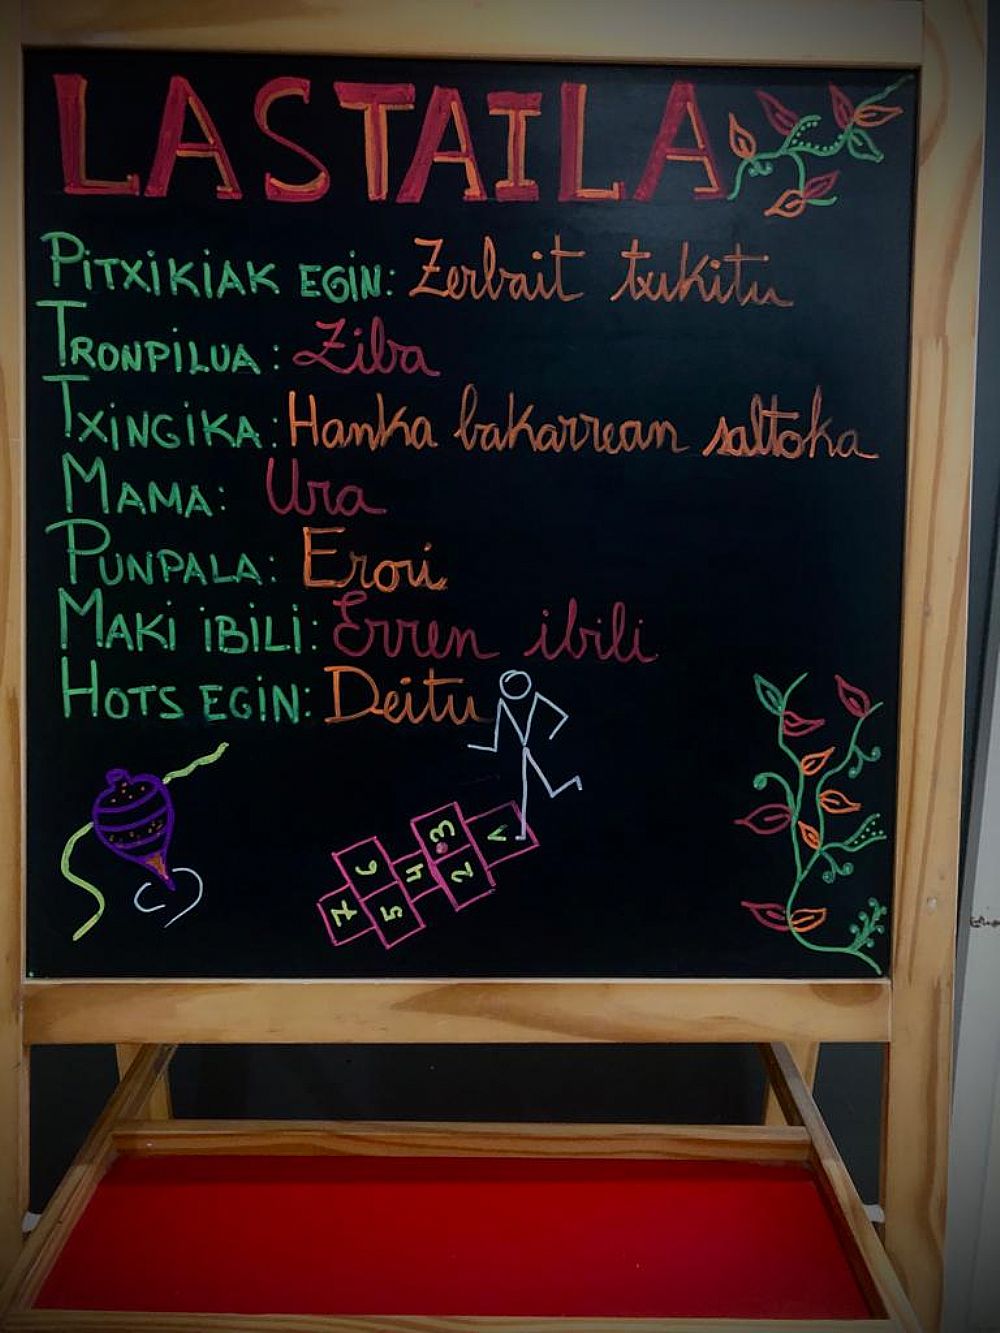 LASTAILA
PITXIKIAK EGIN: Zerbait txikitu
TRONPILUA: Ziba
TXINGIKA: Hanka bakarrean saltoka
MAMA: Ura
PUNPALA: Erori
MAKI IBILI: Erren ibili
HOTS EGIN: Deitu
7 6 5 4 3 2 1